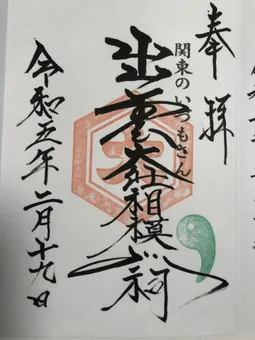 奉拝
関東のいづもさん
出雲大社相模分祠
令和五年二月十九日